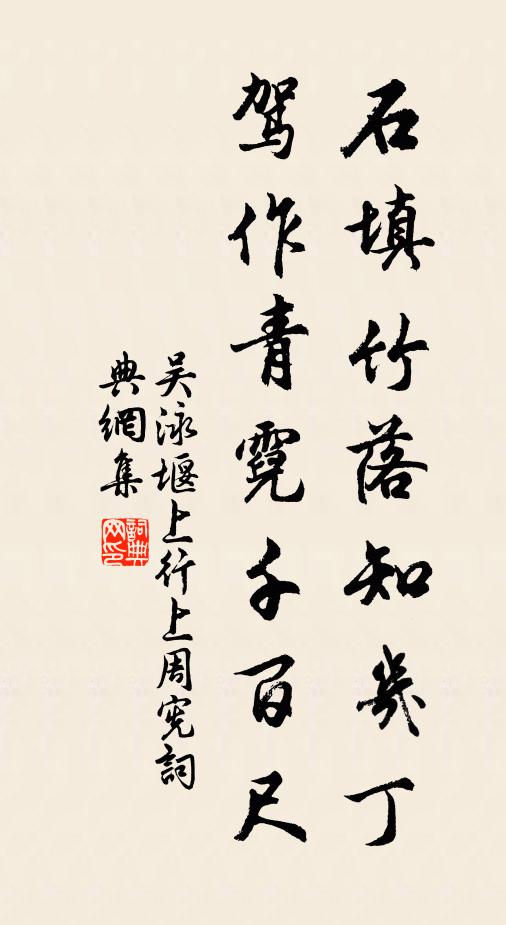 石填竹落知幾丁
駕作青霓千百尺
吳泳堰上行上周憲詞
典網集
詞典網印